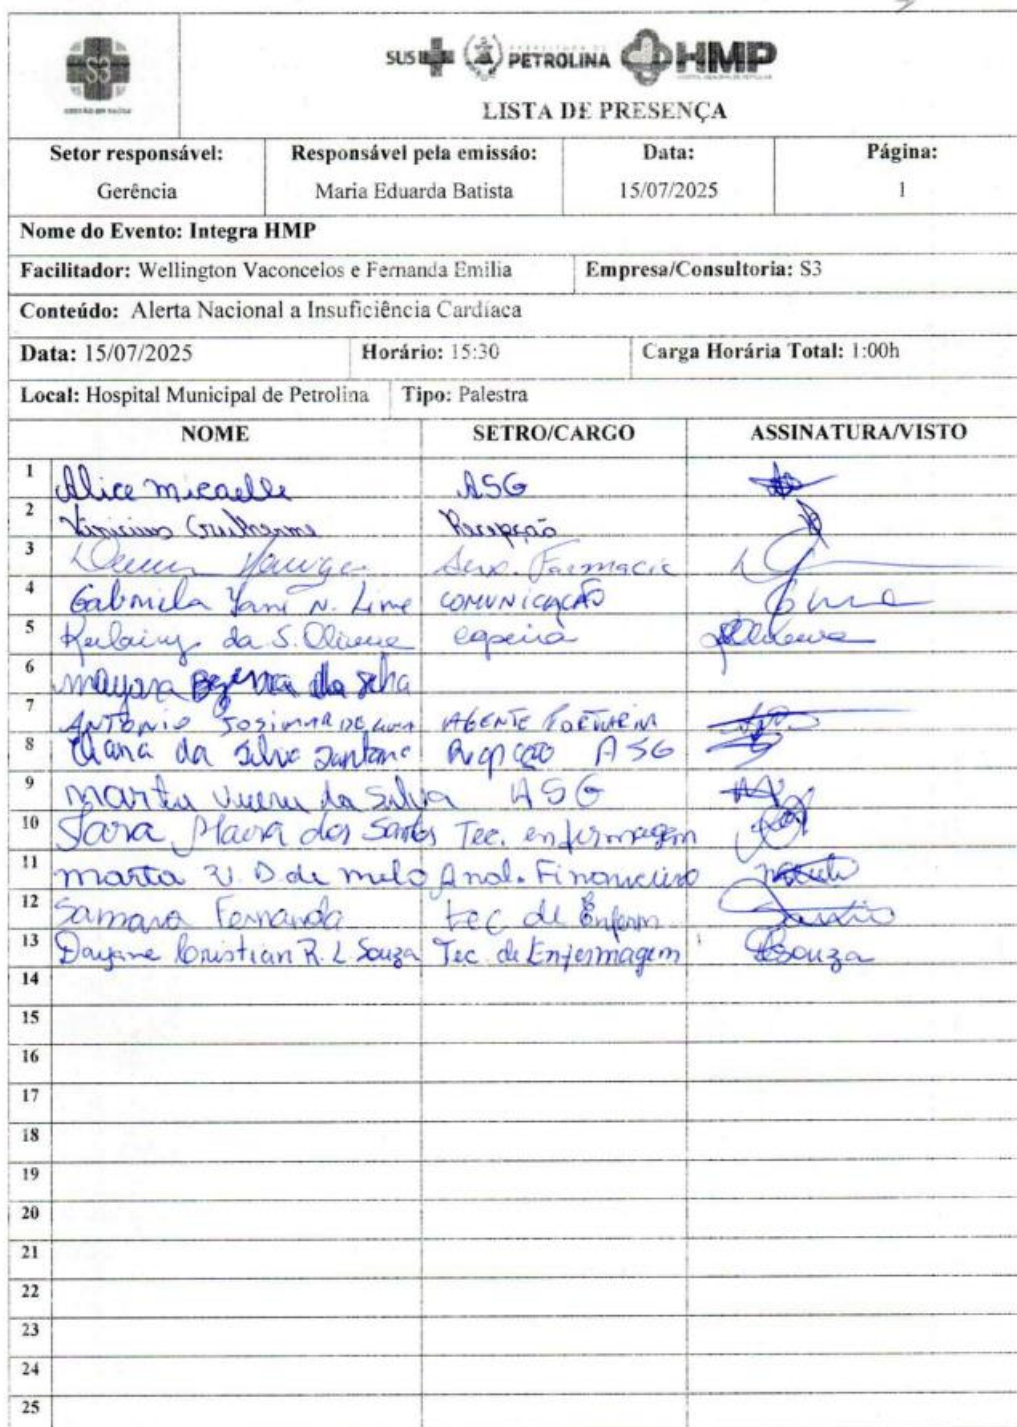 S3
GESTÃO EM SAÚDE
SUS PREFEITURA DE PETROLINA HMP
LISTA DE PRESENÇA
Setor responsável: Responsável pela emissão: Data: Página:
Gerência Maria Eduarda Batista 15/07/2025 1
Nome do Evento: Integra HMP
Facilitador: Wellington Vaconcelos e Fernanda Emilia Empresa/Consultoria: S3
Conteúdo: Alerta Nacional a Insuficiência Cardíaca
Data: 15/07/2025 Horário: 15:30 Carga Horária Total: 1:00h
Local: Hospital Municipal de Petrolina Tipo: Palestra
NOME SETRO/CARGO ASSINATURA/VISTO
1 Alice micaelle ASG
2 Vinicius Guilherme Recepção
3 Farmacia
4 Gabriela Yani N. Lima COMUNICAÇÃO
5 da S. Oliveira
6 mayara Bezerra da Silva
7 ANTONIO JOSIMAR DE AGENTE PORTARIA
8 da Silva Santana ASG
9 marta da Silva ASG
10 dos Santos Tec. enfermagem
11 marta V. D de melo Anal. Financeiro
12 Samara Fernanda tec de Enferm
13 Dayane Cristian R. L Souza Tec. de Enfermagem Souza
14
15
16
17
18
19
20
21
22
23
24
25